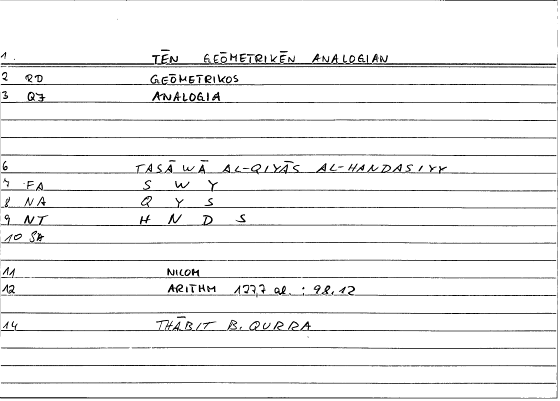 1. TĒN GEŌMETRIKĒN ANALOGIAN
2 RD GEŌMETRIKOS
3 QJ ANALOGIA
6 TASĀWĀ AL-QIYĀS AL-HANDASIYY
7 FA S W Y
8 NA Q Y S
9 NT H N D S
10 SA
11 NICOM
12 ARITHM 127,7 al. : 98.12
14 THĀBIT B. QURRA